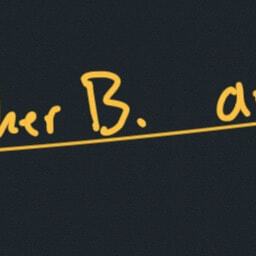 her B. a